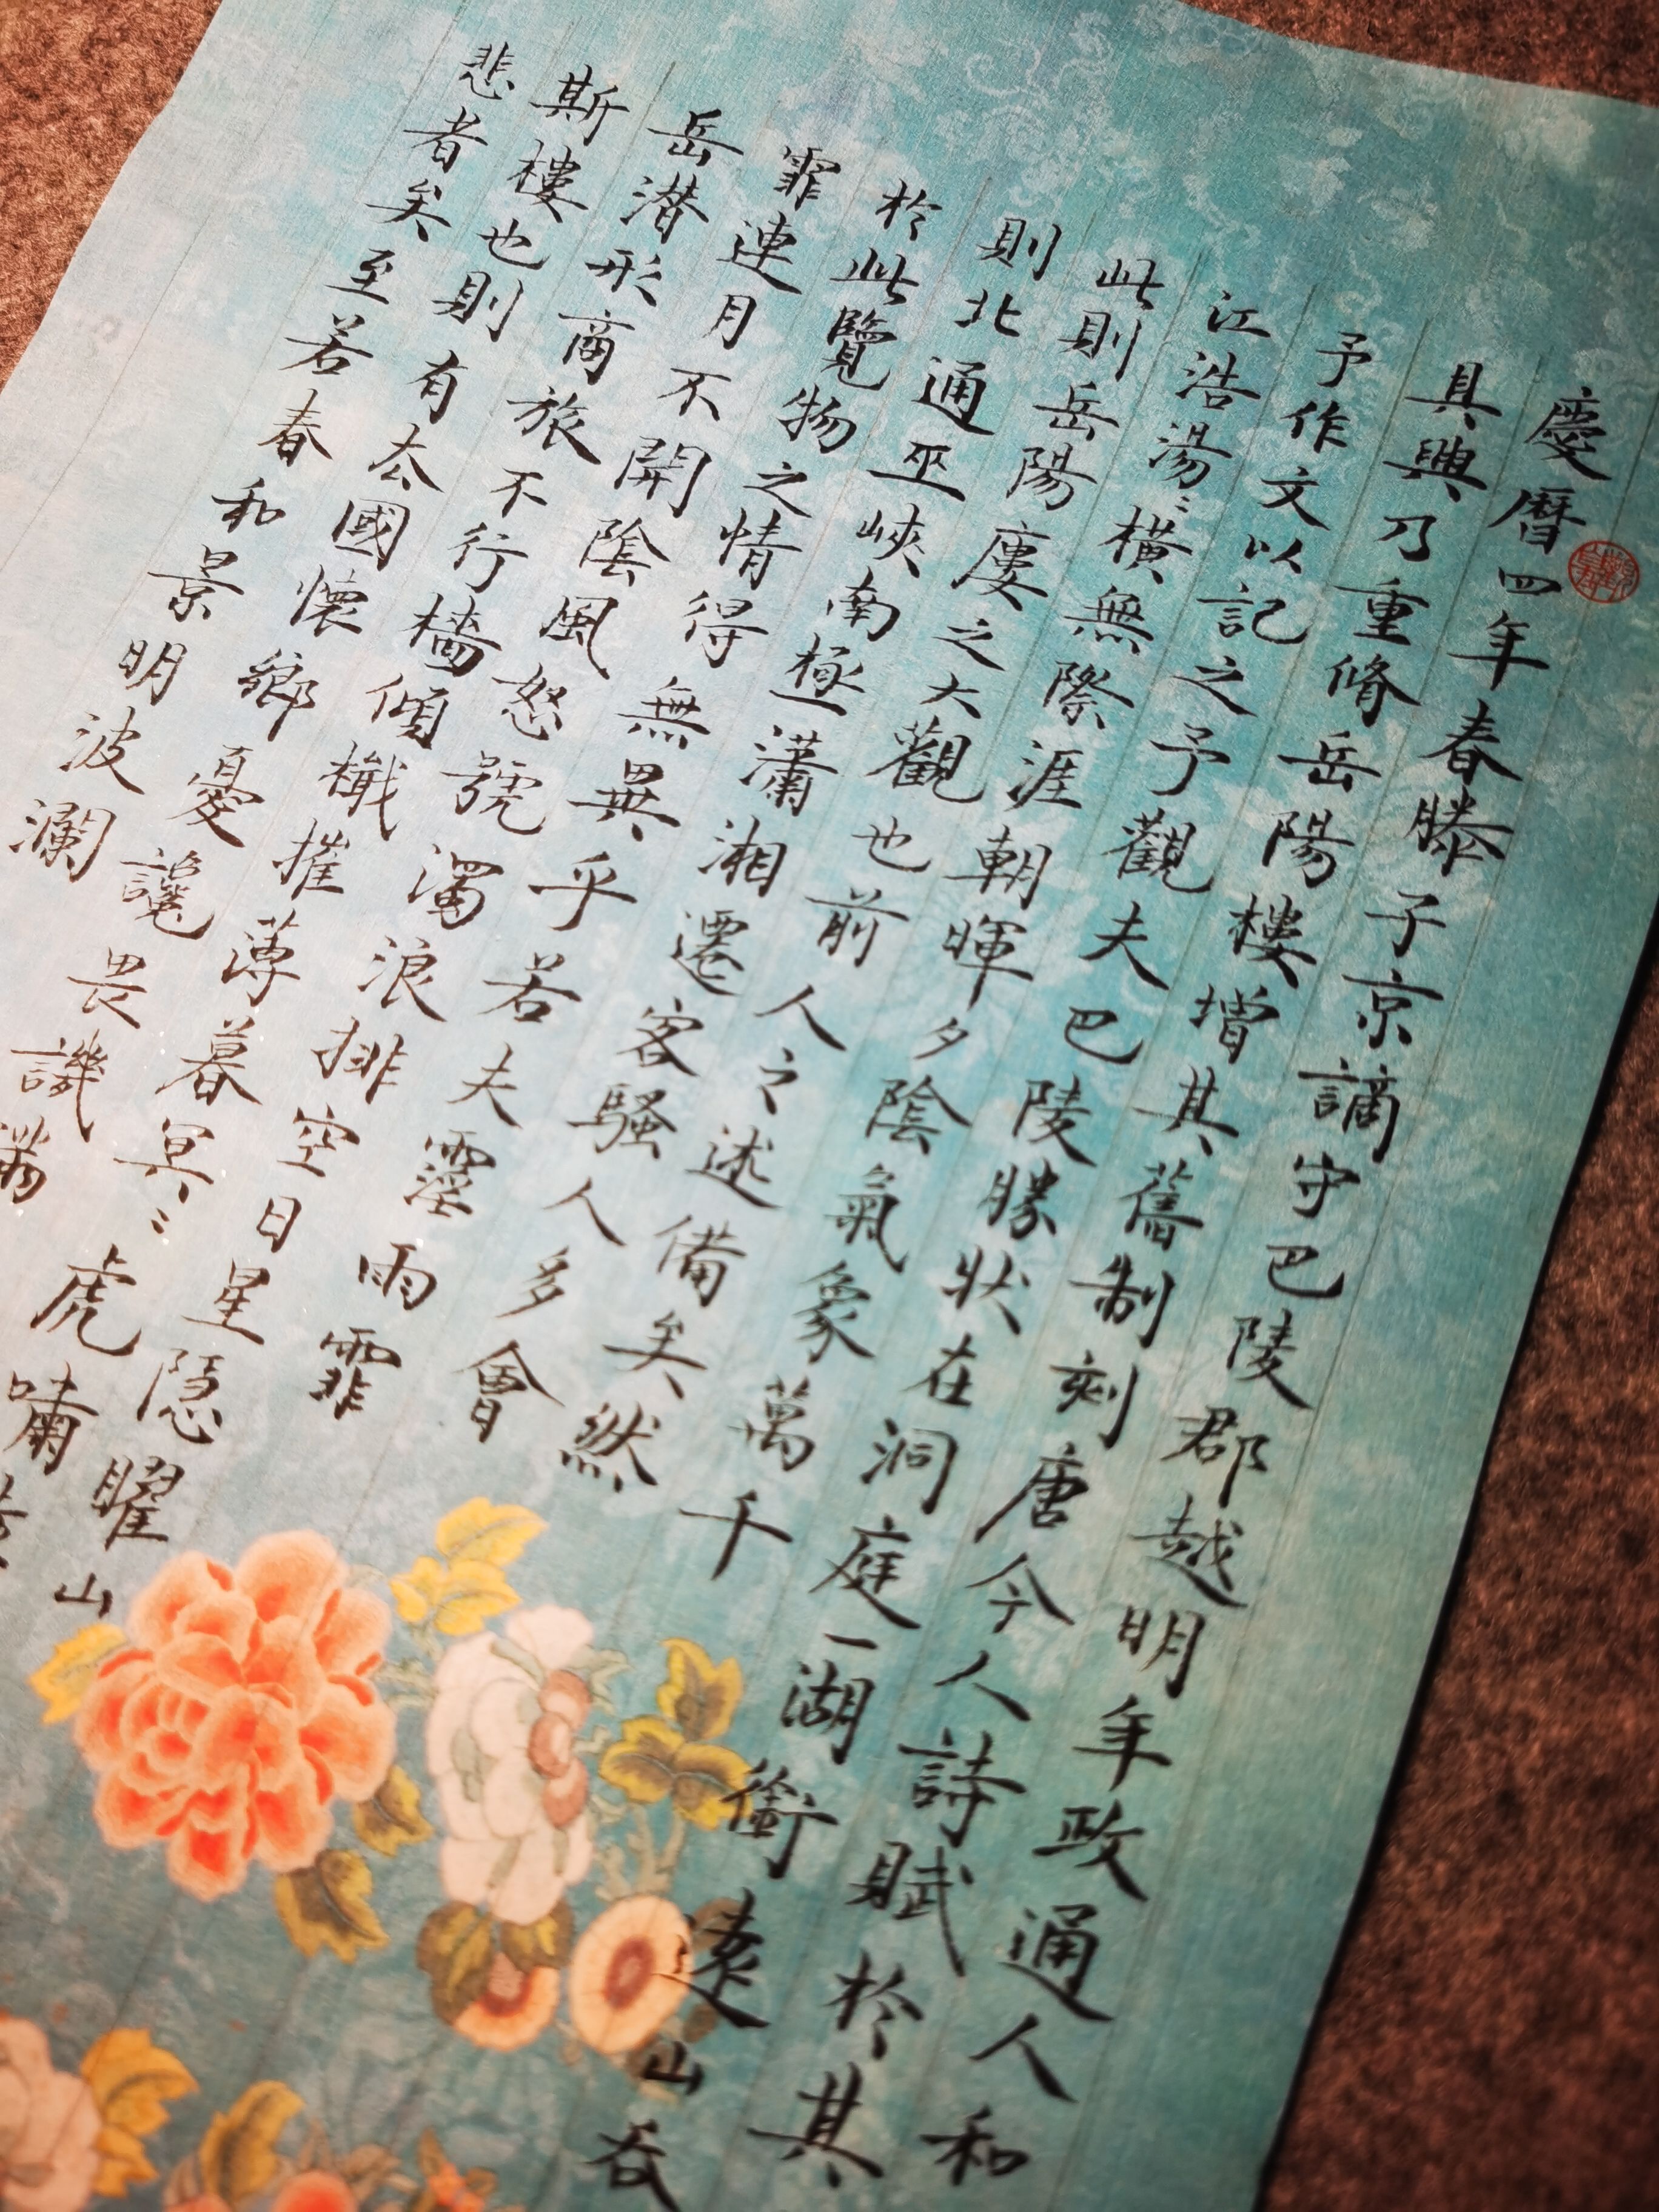 慶暦四年春滕子京謫守巴陵郡越明年政通人和
具興乃重脩岳陽樓增其舊制刻唐今人詩賦於其
予作文以記之予觀夫巴陵勝狀在洞庭一湖銜遠山吞
江浩湯〻橫無際涯朝暉夕陰氣象萬千
此則岳陽廔之大觀也前人之述備矣然
則北通巫峽南極瀟湘遷客騷人多會
於此覽物之情得無異乎若夫霪雨霏
霏連月不開陰風怒號濁浪排空日星隱曜山
岳潜形商旅不行檣傾檝摧薄暮冥〻虎嘯
斯樓也則有厺國懷鄉憂讒畏譏滿
悲者矣至若春和景明波瀾